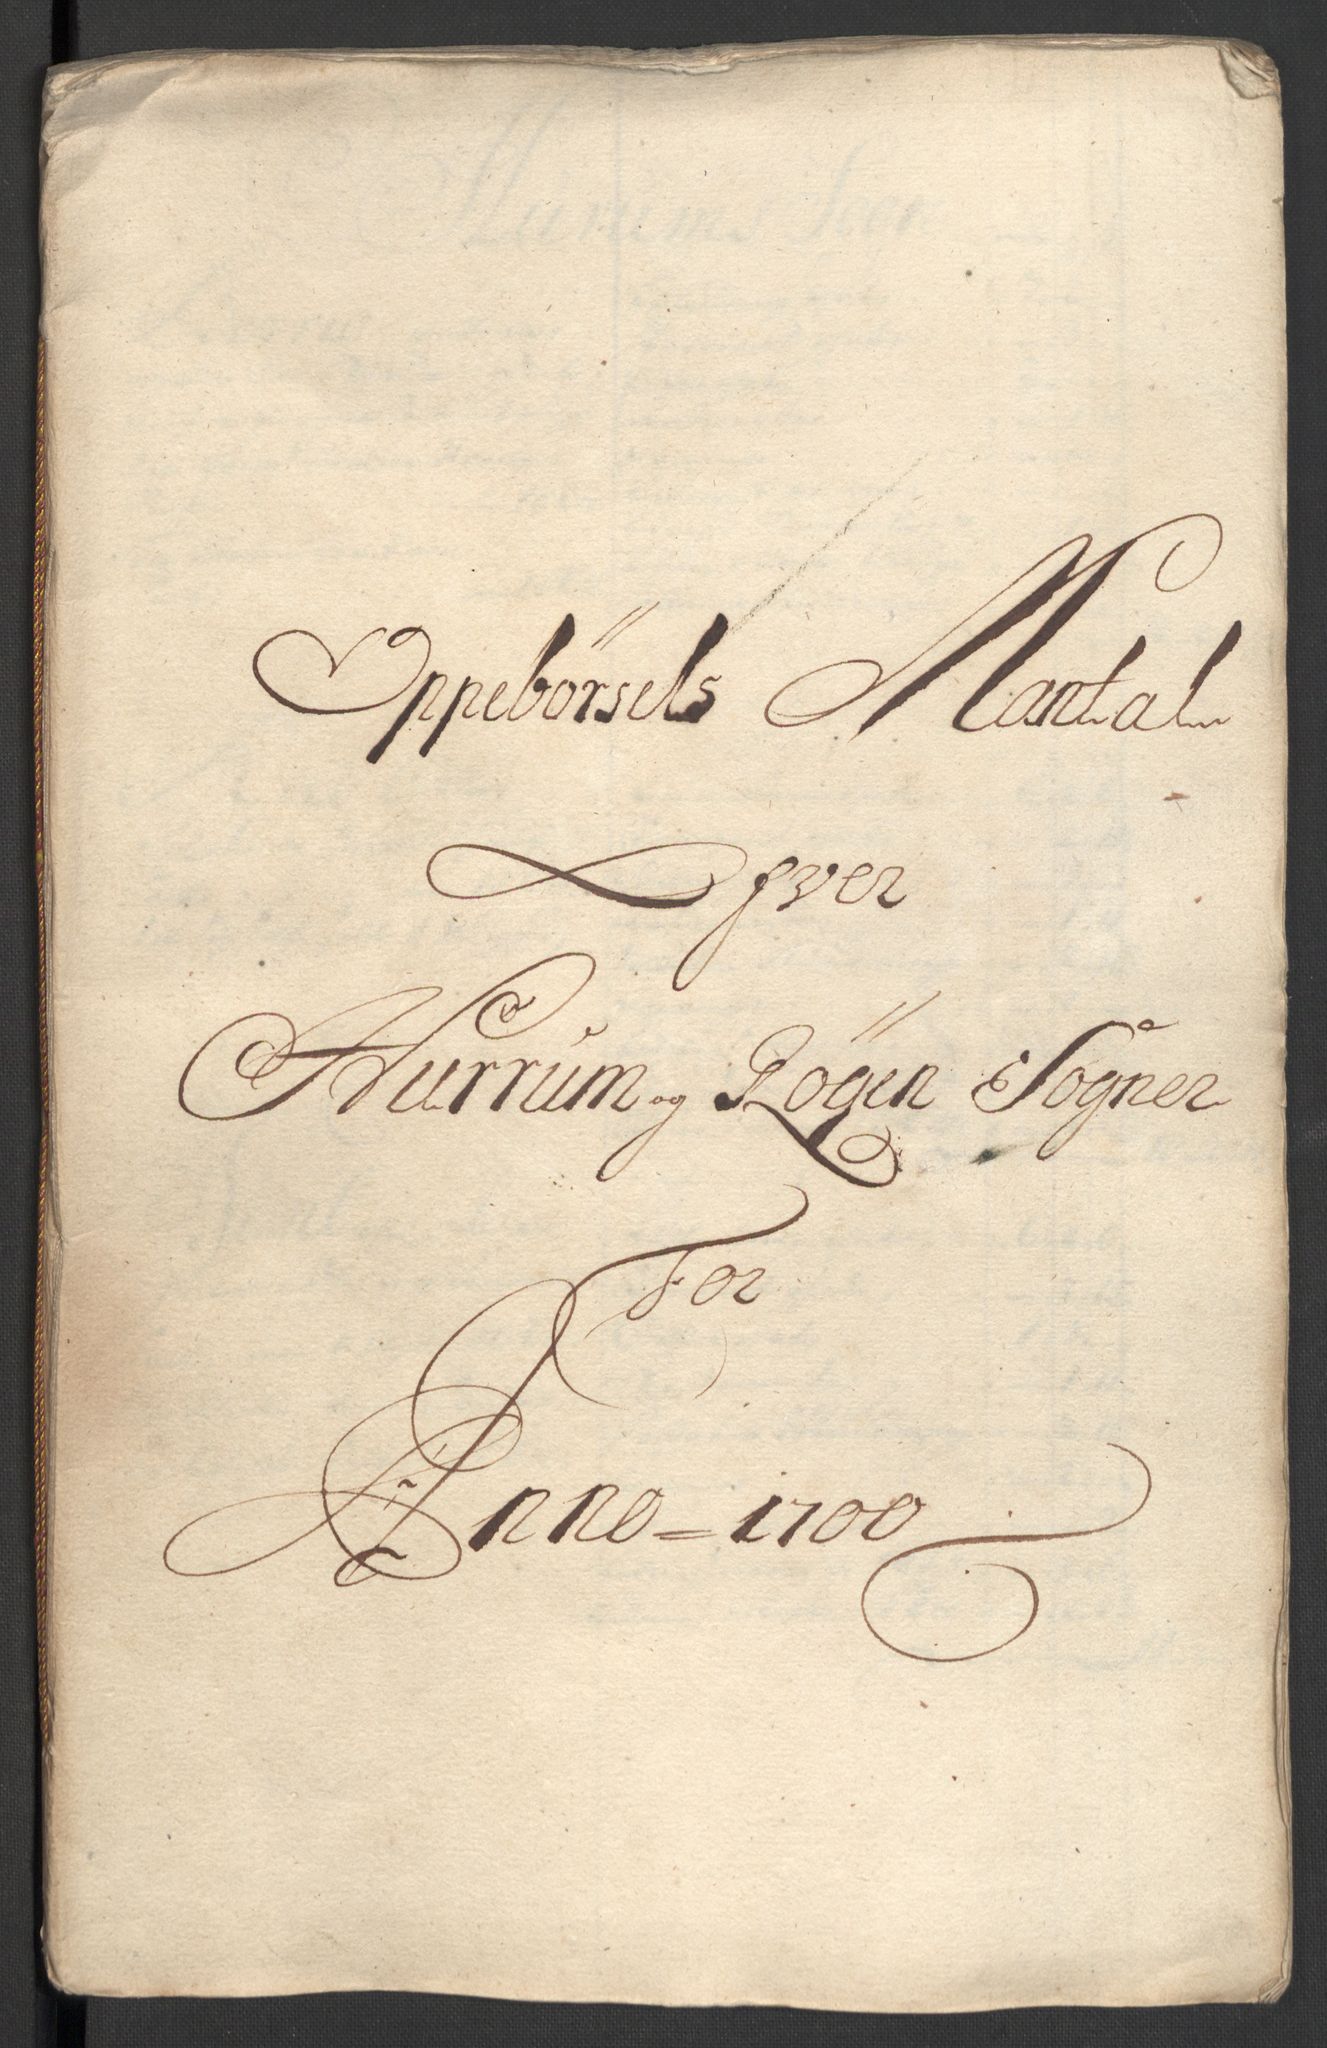 Oppebörsels Mantal
Ofver
Hurrum og Rögen Sogner
For
Anno = 1700